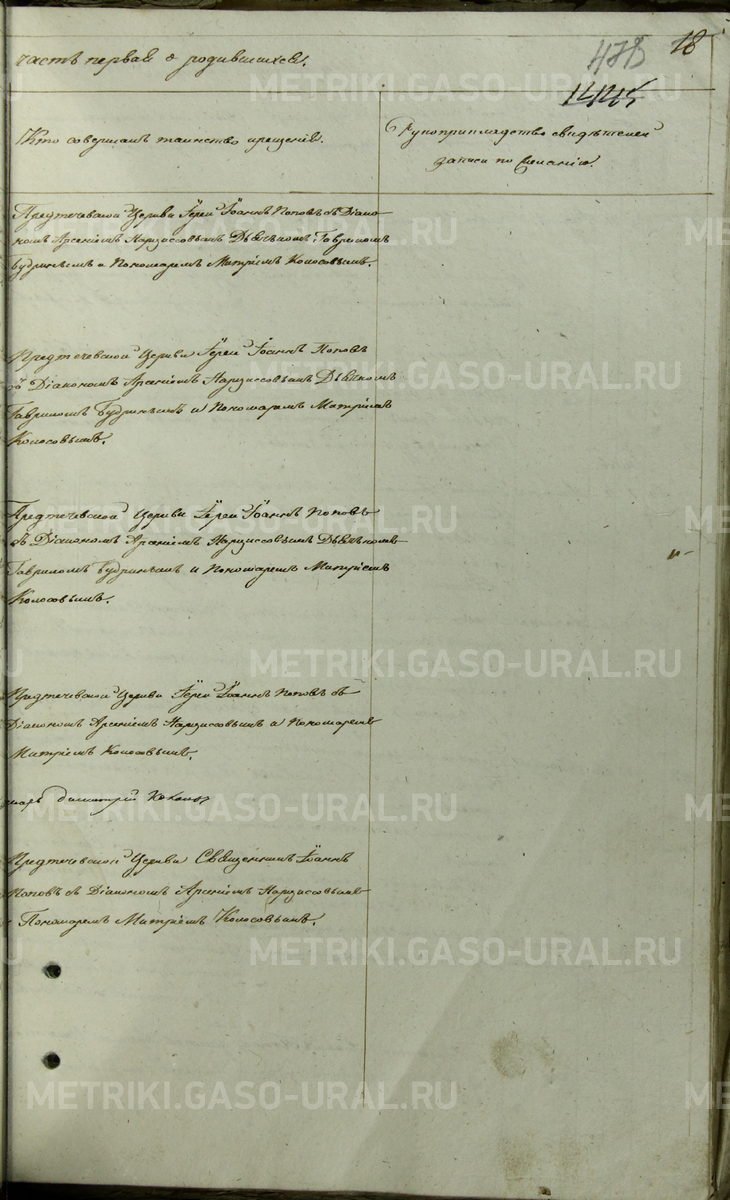 часть первая о родившихся.
478
18
1414
Кто совершалъ таинство крещенія.
Рукоприкладство свидѣтелей
записи по желанію.
Предтечевской Церкви Іерей Іоаннъ Поповъ съ Діако-
номъ Арсеніемъ Нарциссовымъ Дьячкомъ Гавриломъ
Будринымъ и Пономаремъ Колосовымъ.
Предтечевской Церкви Іерей Іоаннъ Поповъ
съ Діакономъ Арсеніемъ Нарциссовымъ Дьячкомъ
Гавриломъ Будринымъ и Пономаремъ
Колосовымъ.
Предтечевской Церкви Іерей Іоаннъ Поповъ
съ Діакономъ Арсеніемъ Нарциссовымъ Дьячкомъ
Гавриломъ Будринымъ и Пономаремъ
Колосовымъ.
Предтечевской Церкви Іерей Іоаннъ Поповъ съ
Діакономъ Арсеніемъ Нарциссовымъ и Пономаремъ
Колосовымъ.
Димитрій
Предтечевской Церкви Священникъ Іоаннъ
Поповъ съ Діакономъ Арсеніемъ Нарциссовымъ
Пономаремъ Колосовымъ.
METRIKI.GASO-URAL.RU